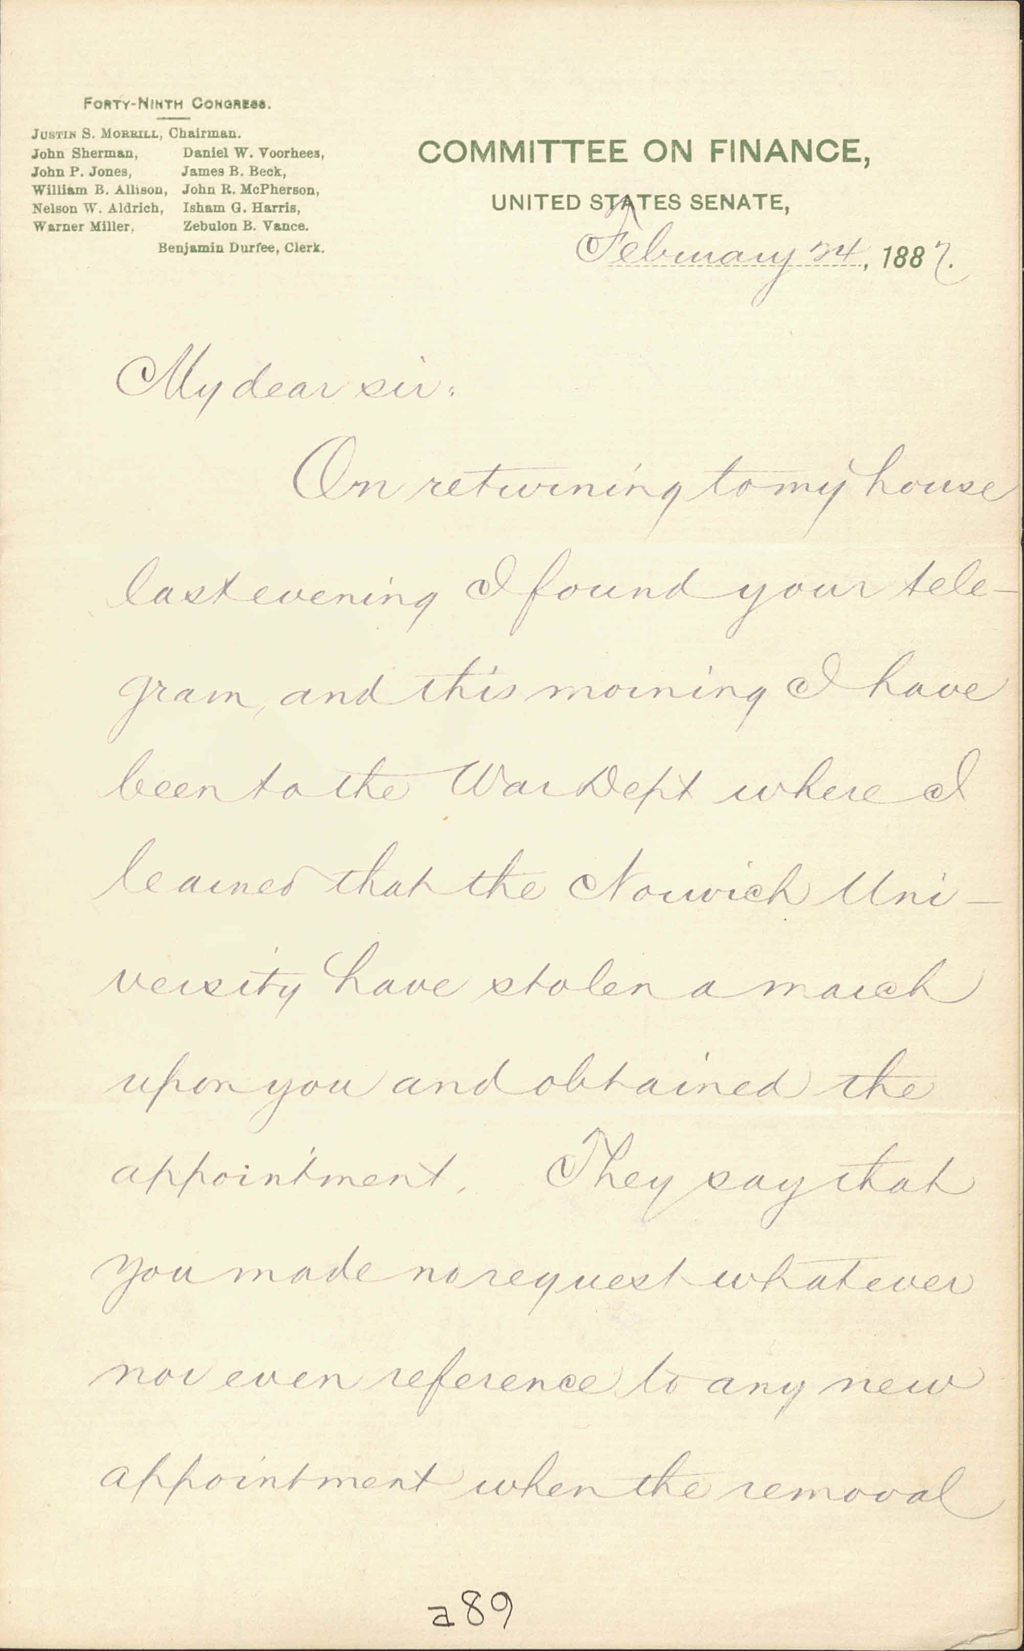 FORTY-NINTH CONGRESS.
JUSTIN S. MORRILL, Chairman.
John Sherman, Daniel W. Voorhees,
John P. Jones, James B. Beck,
William B. Allison, John R. McPherson,
Nelson W. Aldrich, Isham G. Harris,
Warner Miller, Zebulon B. Vance.
Benjamin Durfee, Clerk.
COMMITTEE ON FINANCE,
UNITED STATES SENATE,
February 24, 1887.
My dear sir:
On returning to my house
last evening I found your tele-
gram, and this morning I have
been to the War Dept where I
learned that the Norwich Uni-
versity have stolen a march
upon you and obtained the
appointment. They say that
you made no request whatever
nor even reference to any new
appointment when the removal
a89